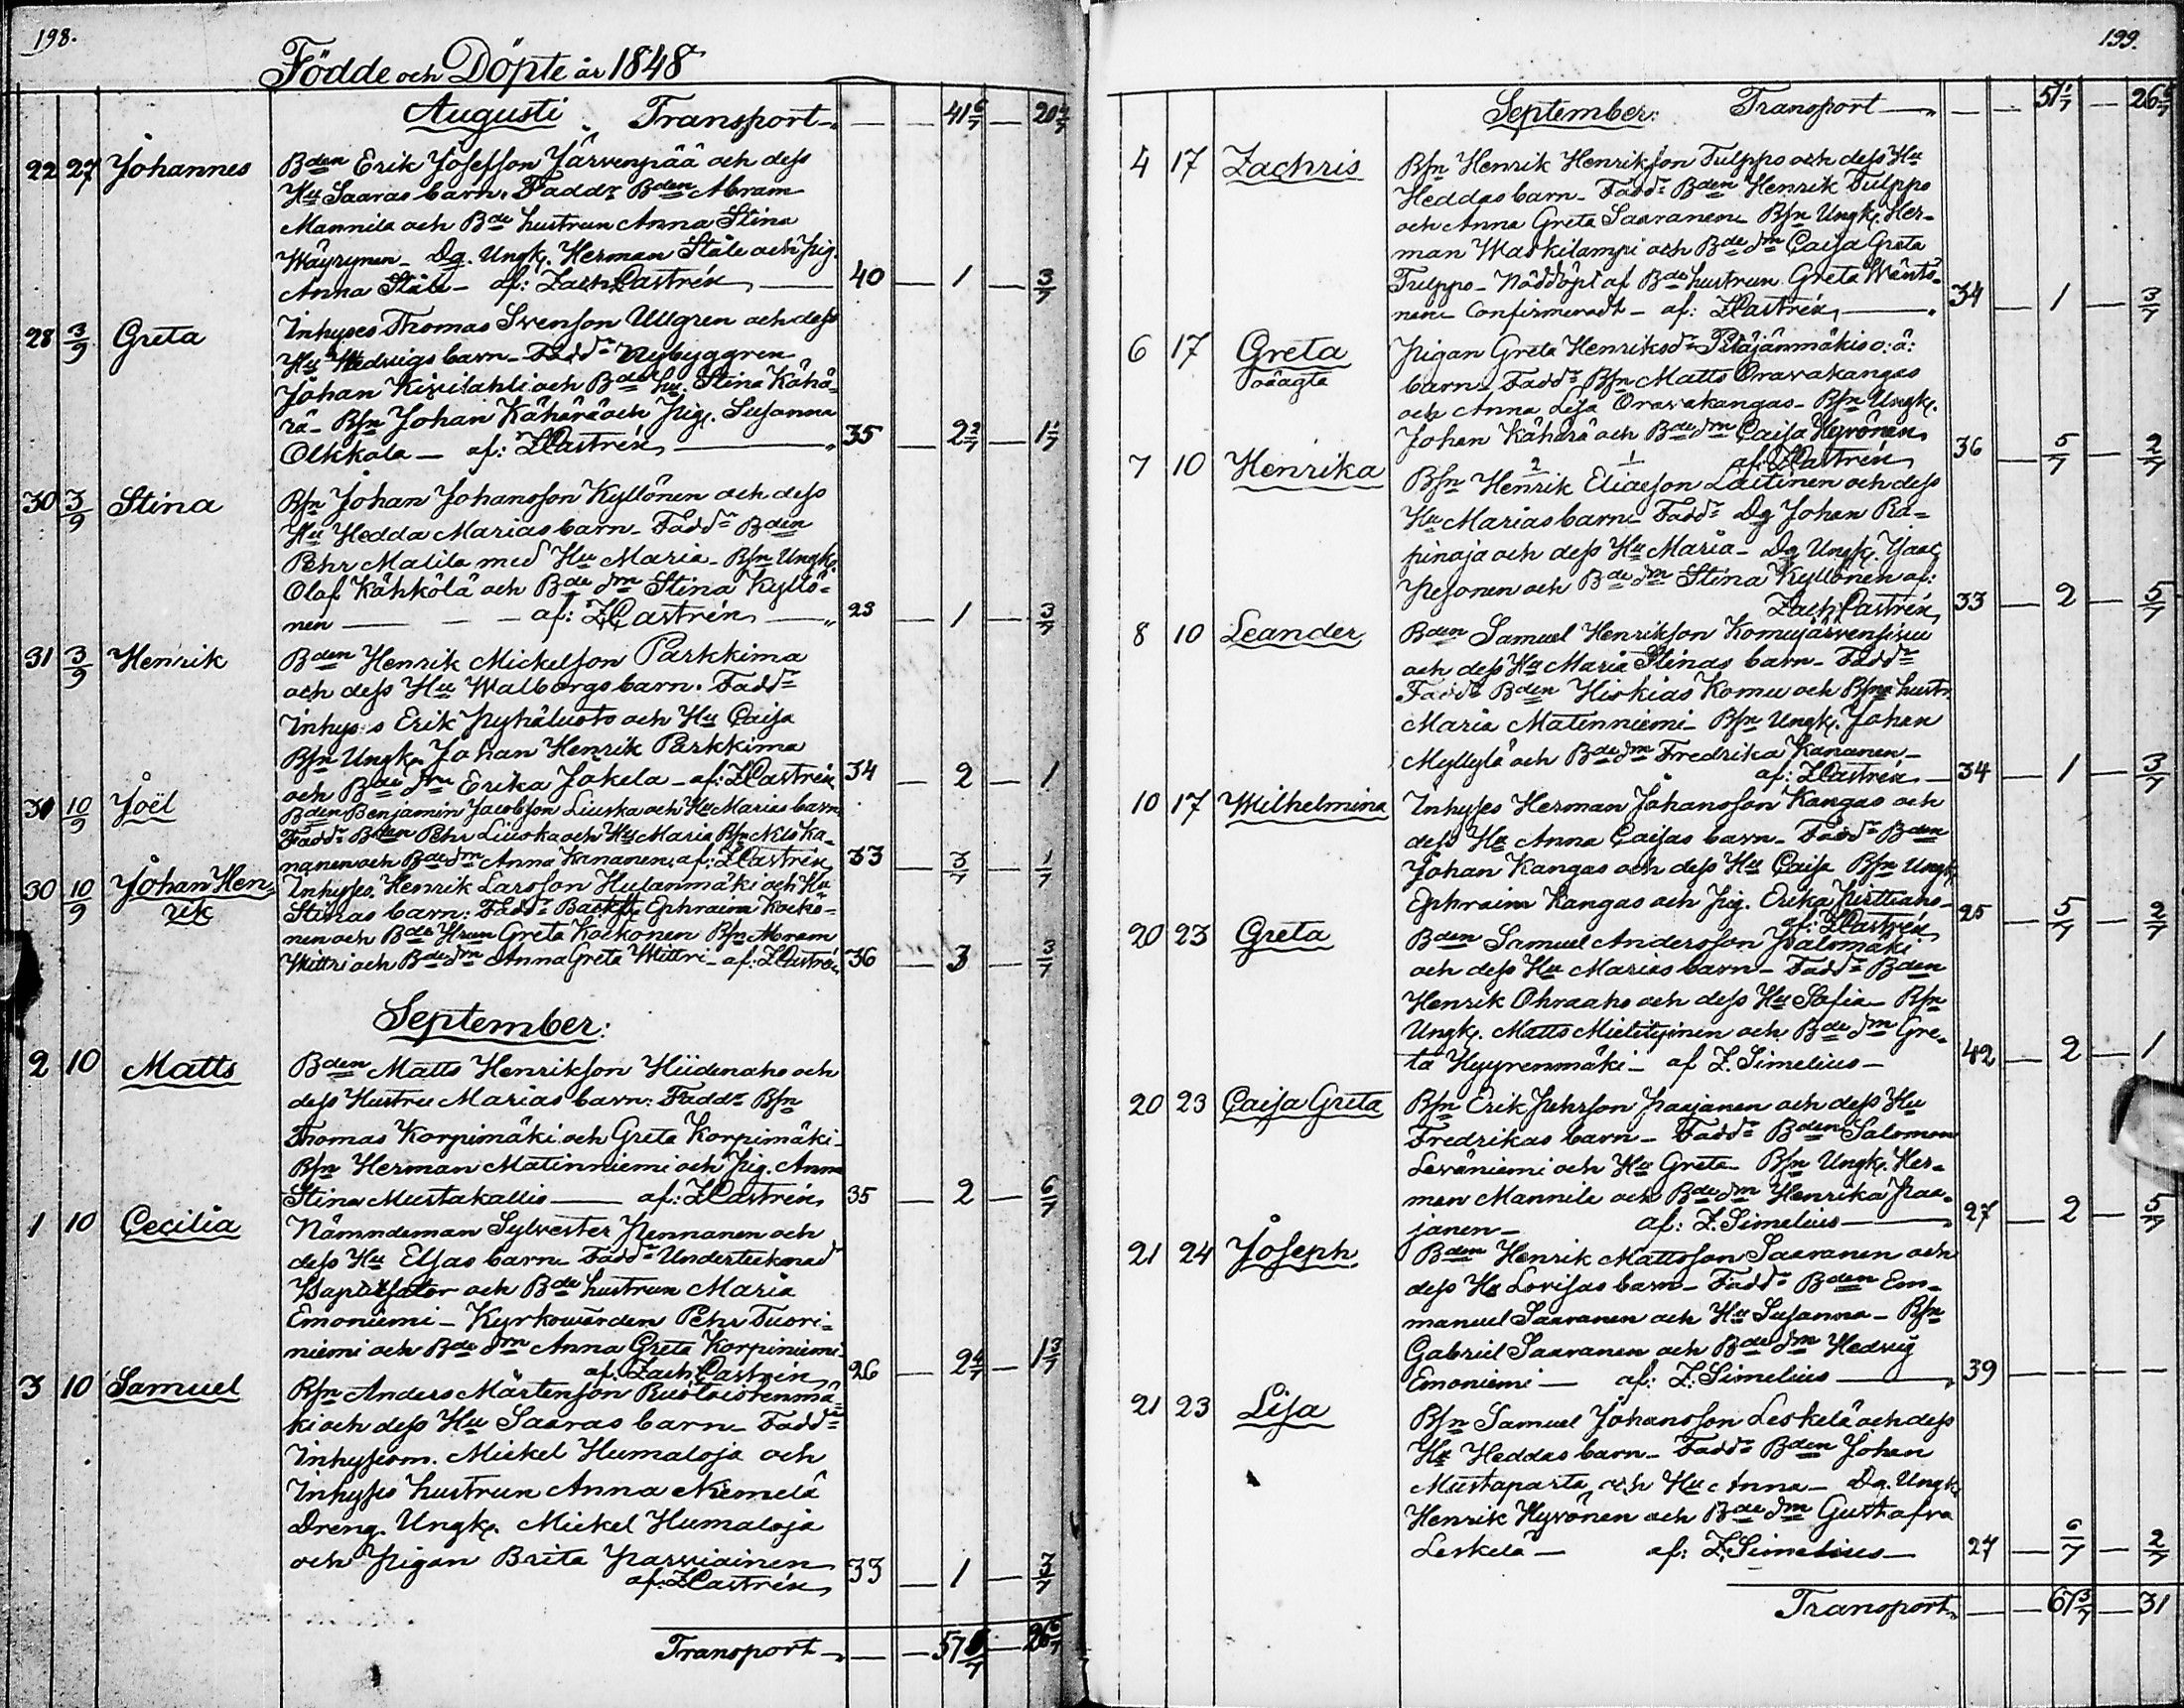 198.
Födde och Döpte år 1848
Augusti Transport — — 41 6/7 — 20 4/7
22 27 Johannes Bden Erik Josefsson Järvenpää och dess
Hu Saaras barn. Faddr Bden Abram
Mannila och Bde hustrun Anna Stina
Wäyrynen — Dg. Ungk. Herman Ståle och Pig.
Anna Ståle — af: Zach Castrén — 40 — 1 — 3/7
28 3/9 Greta Inhyses Thomas Svensson Ullgren och dess
Hu Hedvigs barn — Faddr Nybyggren
Johan Kivilahti och Bde hu. Stina Kähä-
rä — Bsn Johan Kähärä och Pig. Susanna
Olkkola — af: ZCastrén — 35 — 2 2/7 — 1 1/7
30 3/9 Stina Bsn Johan Johansson Kyllönen och dess
Hu Hedda Marias barn — Faddr Bden
Pehr Malila med Hu Maria — Bsn Ungk.
Olof Kähkölä och Bde dm Stina Kyllö-
nen — — — af: ZCastrén — 23 — 1 — 3/7
31 3/9 Henrik Bden Henrik Mickelsson Parkkima
och dess Hu Walborgs barn. Faddr
Inhys:s Erik Pyhäluoto och Hu Caisa
Bsn Ungk. Johan Henrik Parkkima
och Bde dm Erika Jokela — af: ZCastrén 34 — 2 — 1
31 10/9 Joël Bden Benjamin Jacobsson Liuska och Hu Marias barn
Faddr Bden Pehr Liuska och Hu Maria Bsn Nils Ka-
nanen och Bde dm Anna Kananen, af: ZCastrén 33 — 3/7 — 1/7
30 10/9 Johan Hen- Inhyses Henrik Larsson Hulanmäki och Hu
rik Stinas barn: Faddr Backst. Ephraim Kockō-
nen och Bde Hrun Greta Kockonen Bsn Abram
Wittri och Bde dm Anna Greta Wittri — af: ZCastrén 36 — 3 — 3/7
September:
2 10 Matts Bden Matts Henriksson Hiidenaho och
dess Hustru Marias barn: Faddr Bsn
Thomas Korpimäki och Greta Korpimäki —
Bsn Herman Matinniemi och Pig. Anna
Stina Mustakallio — af: ZCastrén 35 — 2 — 6/7
1 10 Cecilia Nämndeman Sylvester Pennanen och
dess Hu Elsas barn — Faddr Undertecknad
och Bde hustrun Maria
Emoniemi — Kyrkowärden Pehr Tuori-
niemi och Bde dm Anna Greta Korpiniemi —
af: Zach Castrén 26 — 2 4/7 — 1 3/7
3 10 Samuel Bsn Anders Mårtensson Ruotoistenmä-
ki och dess Hu Saaras barn — Faddr
Inhysesm. Mickel Humaloja och
Inhyses hustrun Anna Niemelä
Dreng. Ungk. Mickel Humaloja
och Pigan Brita Parviainen
af: ZCastrén 33 — 1 — 3/7
Transport — — 57 — 26 6/7
199.
September: Transport — — 51 1/7 — 26 6/7
4 17 Zachris Bsn Henrik Henriksson Tulppo och dess Hu
Heddas barn — Faddr Bden Henrik Tulppo
och Anna Greta Saaranen — Bsn Ungk. Her-
man Waskilampi och Bde dm Caisa Greta
Tulppo — Nöddöpt af Bde hustrun Greta Wäntö-
nen — Confirmeradt — af: ZCastrén — 34 — 1 — 3/7
6 17 Greta Pigan Greta Henriksdr Pitäjänmäkis o: ä:
oäagta barn — Faddr Bsn Matts Oravakangas
och Anna Lisa Oravakangas — Bsn Ungk.
Johan Kähärä och Bde dm Caisa Hyvönen
af: ZCastrén 36 — 5/7 — 2/7
7 10 Henrika Bsn Henrik Eliasson Laitinen och dess
Hu Marias barn — Faddr Dg Johan Ra-
pinoja och dess Hu Maria — Dg Ungk. Isaac
Pesonen och Bde dm Stina Kyllönen af:
Zach Castrén 33 — 2 — 5/7
8 10 Leander Bden Samuel Henriksson Komujärvensivu
och dess Hu Maria Stinas barn — Faddr
Faddr Bden Hiskias Komu och Bsns hustr.
Maria Matinniemi — Bsn Ungk. Johan
Myllylä och Bde dm Fredrika Kananen —
af: ZCastrén — 34 — 1 — 3/7
10 17 Wilhelmina Inhyses Herman Johansson Kangas och
dess Hu Anna Caisas barn — Faddr Bden
Johan Kangas och dess Hu Caisa Bsn Ungk.
Ephraim Kangas och Pig. Erika Pirttiaho —
af: ZCastrén 25 — 5/7 — 2/7
20 23 Greta Bden Samuel Andersson Isalomäki
och dess Hu Marias barn — Faddr Bden
Henrik Ohraaho och dess Hu Sofia — Bsn
Ungk. Matts Mielityinen och Bde dm Gre-
ta Hyyrenmäki — af Z. Simelius — 42 — 2 — 1
20 23 Caisa Greta Bsn Erik Pehrsson Paajanen och dess Hu
Fredrikas barn — Faddr Bden Salomon
Leväniemi och Hu Greta — Bsn Ungk. Her-
man Mannila och Bde dm Henrika Paa-
janen — af: Z. Simelius — 27 — 2 — 5/7
21 24 Joseph Bden Henrik Mattsson Saaranen och
dess Hu Lovisas barn — Faddr Bden Em-
manuel Saaranen och Hu Susanna — Bsn
Gabriel Saaranen och Bde dm Hedvig
Emoniemi — af: Z: Simelius — 39 — — — —
21 23 Lisa Bsn Samuel Johansson Leskelä och dess
Hu Heddas barn — Faddr Bden Johan
Mustaparta och Hu Anna — Dg. Ungk.
Henrik Hyvönen och Bde dm Gustafva
Leskelä — af: Z. Simelius — 27 — 6/7 — 2/7
Transport — — 67 3/7 — 31